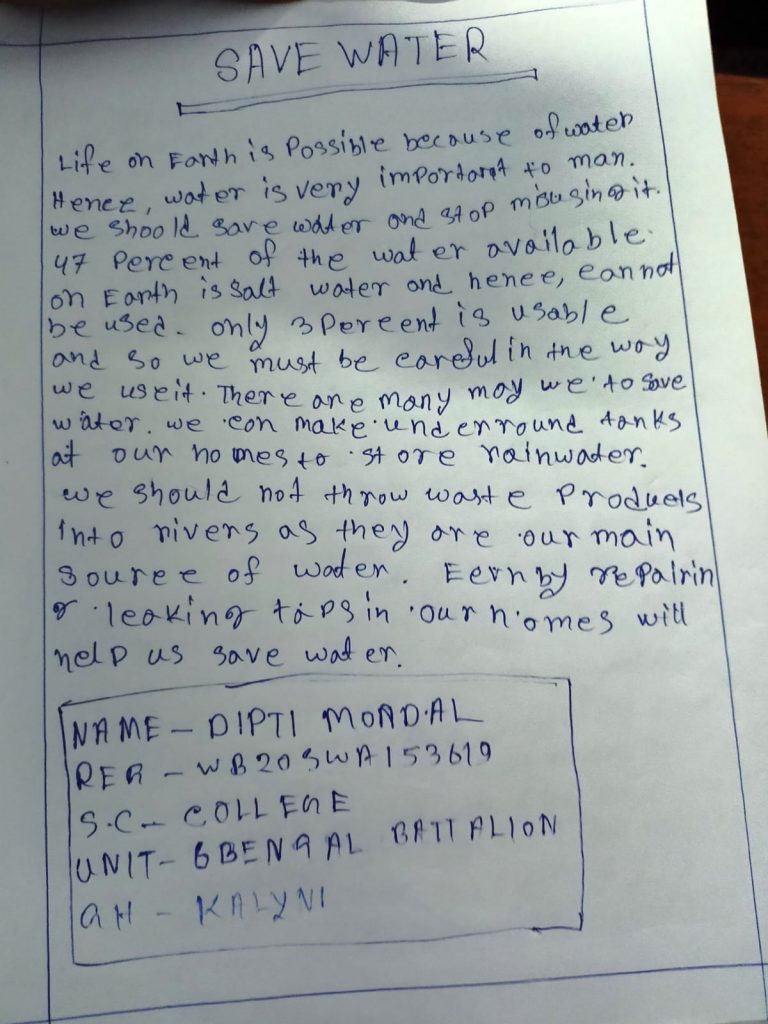 SAVE WATER
Life on Earth is Possible because of water
Hence, water is very important to man.
we shoold save water and stop misusing it.
47 Percent of the water available.
on Earth is salt water and hence, cannot
be used. only 3 Percent is usable
and so we must be careful in the way
we use it. There are many may we to save
water. we can make underround tanks
at our homes to store rainwater.
we should not throw waste Products
into rivers as they are our main
source of water. Eern by repairin
g leaking taps in our homes will
help us save water.
NAME - DIPTI MONDAL
REG - WB20SWA153619
S.C - COLLEGE
UNIT - 6 BENGAL BATTALION
GH - KALYNI